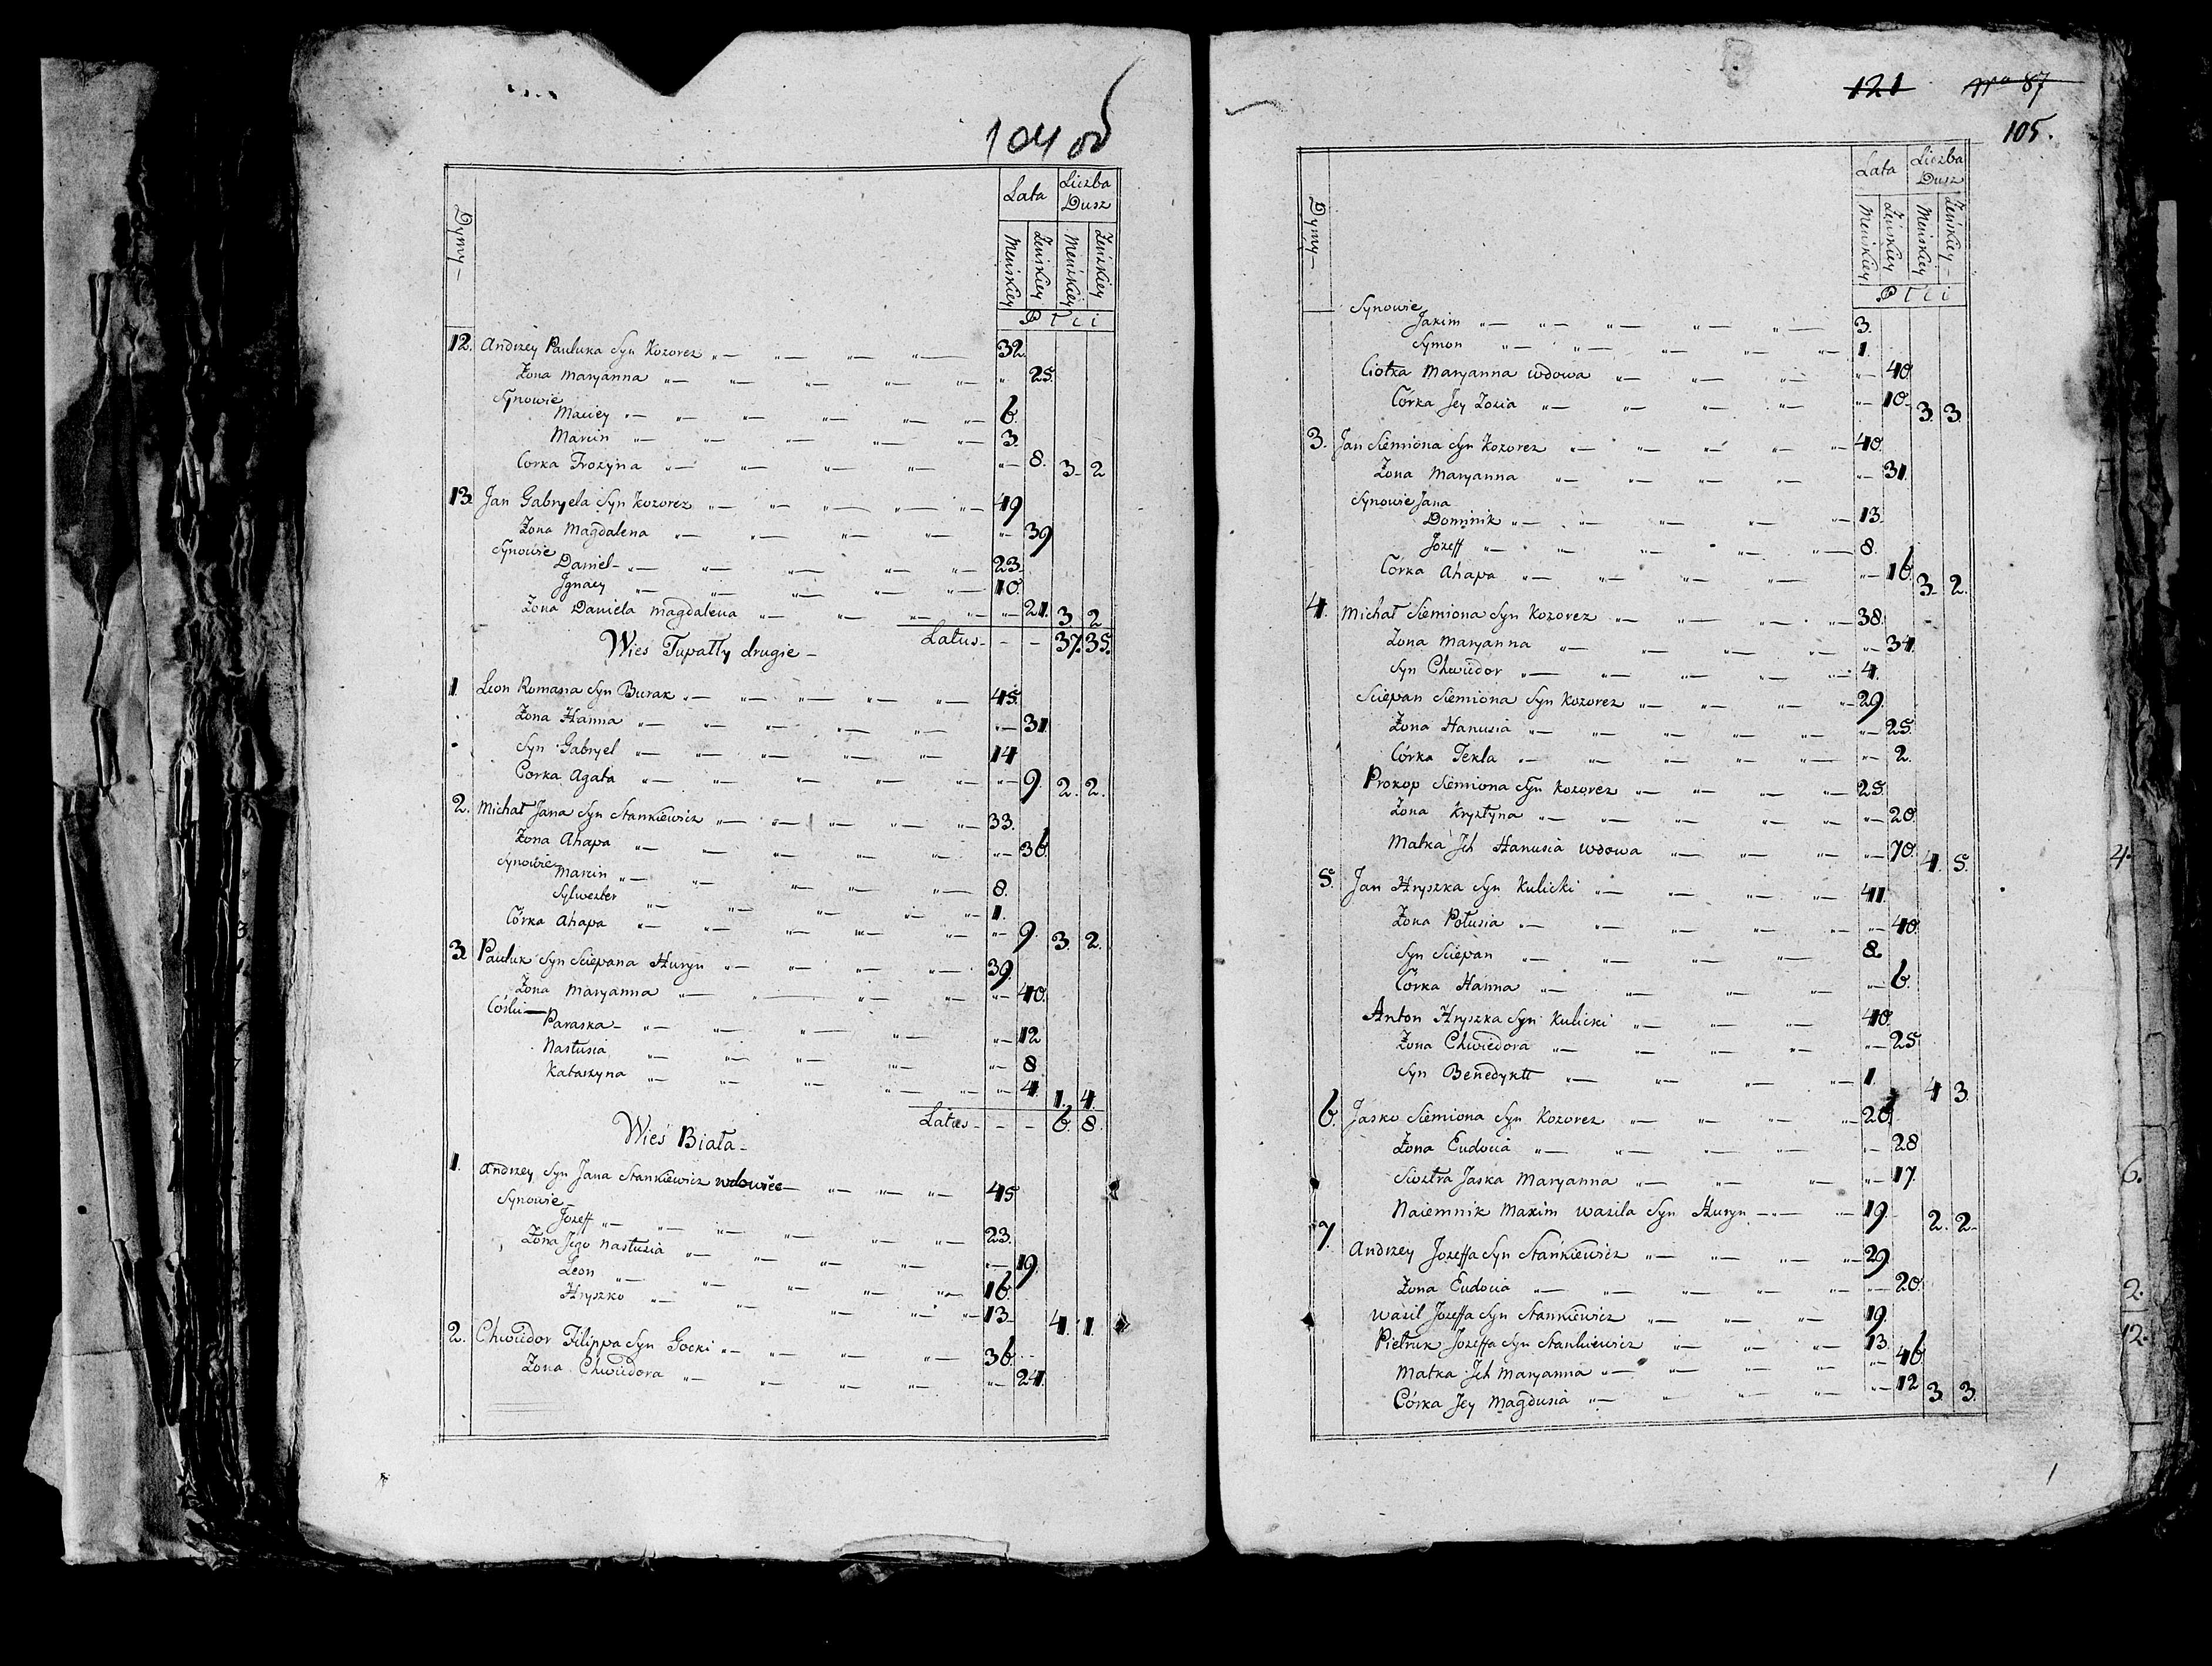 104 об
Dymy –
Lata
Liczba Dusz
Męńskiey
Żeńskiey
Męńskiey
Żeńskiey
Płci
12. Andrzey Pauluka Syn Kozorez 32.
Żona Maryanna 25.
Synowie
Maciey 6.
Marcin 3.
Corka Frozyna 8. 3 2
13. Jan Gabryela Syn Kozorez 49
Żona Magdalena 39
Synowie
Daniel 23.
Jgnacy 10.
Żona Daniela Magdalena 21. 3. 2
Latus - - - 37. 35.
Wies Tupałły drugie –
1. Leon Romana Syn Burak 45.
Żona Hanna 31.
Syn Gabryel 14
Corka Agata 9. 2. 2.
2. Michał Jana Syn Stankiewicz 33.
Żona Ahapa 36.
Synowie
Marcin 8.
Sylwester 1.
Córka Ahapa 9. 3. 2.
3. Pauluk Syn Sciepana Huryn 39.
Żona Maryanna 40.
Córki
Paraska 12
Nastusia 8
Katarzyna 4. 1. 4.
Latus - - - 6. 8.
Wieś Biała –
1. Andrzey Syn Jana Stankiewicz wdowiec 45
Synowie
Jozeff 23.
Żona Jego Nastusia 19.
Leon 16.
Hryszko 13. 4. 1.
2. Chwiedor Filippa Syn Gocki 36.
Żona Chwiedora 24.
121 Nro 87
105.
Dymy –
Lata
Liczba Dusz
Męńskiey
Żeńskiey
Męńskiey
Żeńskiey –
Płci
Synowie
Jakim 3.
Symon 1.
Ciotka Maryanna wdowa 40.
Córka Jey Zosia 10. 3. 3.
3. Jan Siemiona Syn Kozorez 40.
Żona Maryanna 31.
Synowie Jana
Dominik 13.
Jozeff 8.
Córka Ahapa 16. 3. 2.
4. Michał Siemiona Syn Kozorez 38.
Żona Maryanna 34.
Syn Chwiedor 4.
Sciepan Siemiona Syn Kozorez 29.
Żona Hanusia 25.
Córka Tekla 2.
Prokop Siemiona Syn Kozorez 25.
Żona Krystyna 20.
Matka Jch Hanusia wdowa 70. 4. 5.
5. Jan Hryszka Syn Kulicki 41.
Żona Połusia 40.
Syn Sciepan 8.
Córka Hanna 6.
Anton Hryszka Syn Kulicki 40.
Żona Chwiedora 25
Syn Benedykt 1. 4 3.
6. Jasko Siemiona Syn Kozorez 20.
Żona Eudocia 28
Siostra Jaska Maryanna 17.
Naiemnik Maxim Wasila Syn Huryn 19. 2. 2.
7. Andrzey Jozeffa Syn Stańkiewicz 29.
Żona Eudocia 20.
Wasil Jozeffa Syn Stankiewicz 19.
Pietruk Jozeffa Syn Stankiewicz 13.
Matka Jch Maryanna 46.
Córka Jey Magdusia 12 3. 3.
4.
6.
2.
12.